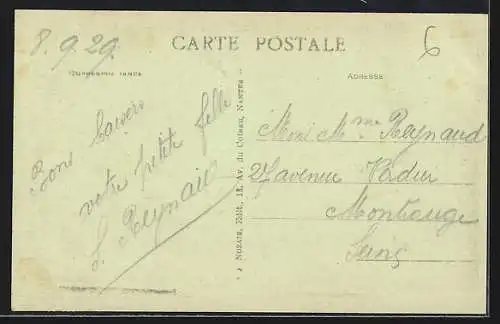 8.9.29
CARTE POSTALE
6
CORRESPONDANCE
ADRESSE
Bons baisers
votre petite fille
S. Reynaud
J. NOZAIS, Édit., 12, Av. du Coteau, NANTES
Mons M. me Reynaud
27 avenue Verdun
Montrouge
Seine